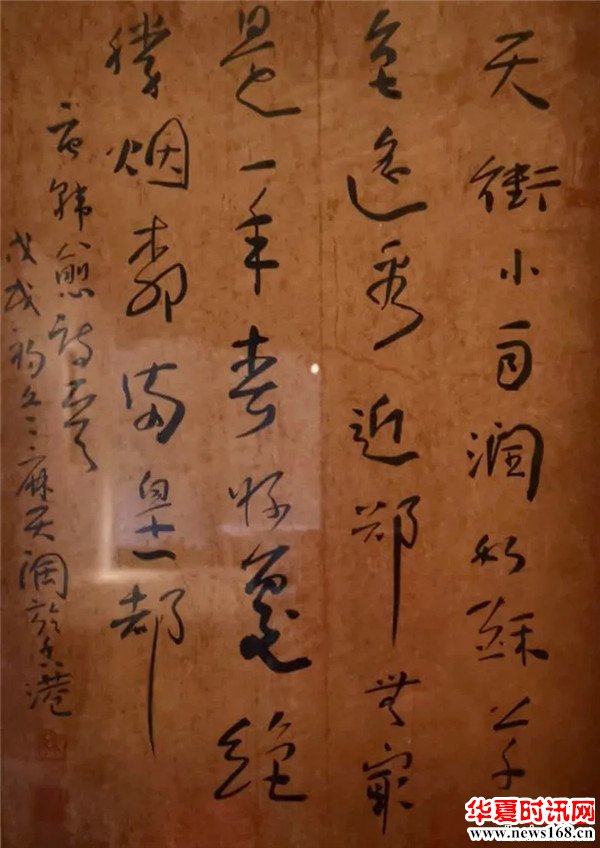 天街小雨润如酥草
色遥看近却無最
是一年春好處绝
勝烟柳满皇都
唐韩愈詩一首
戊戌初冬麻天阔於香港
华夏时讯网
www.news168.cn